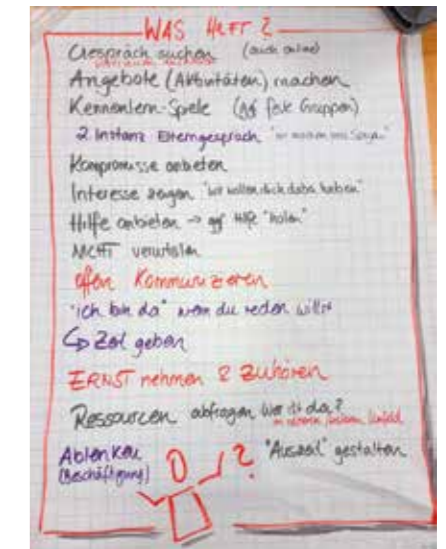 WAS HILFT ?
Gespräch suchen (auch online)
Angebote (Aktivitäten) machen
Kennenlern-Spiele (ggf feste Gruppen)
2. Instanz Elterngespräch "wir machen uns Sorgen"
Kompromisse anbieten
Interesse zeigen "wir wollen dich dabei haben"
Hilfe anbieten → ggf Hilfe "holen"
NICHT verurteilen
offen Kommunizieren
"ich bin da" wenn du reden willst
↳ Zeit geben
ERNST nehmen & zuhören
Ressourcen abfragen Wer ist da?
in deinem Umfeld
Ablenken ? "Auszeit" gestalten
(Beschäftigung)